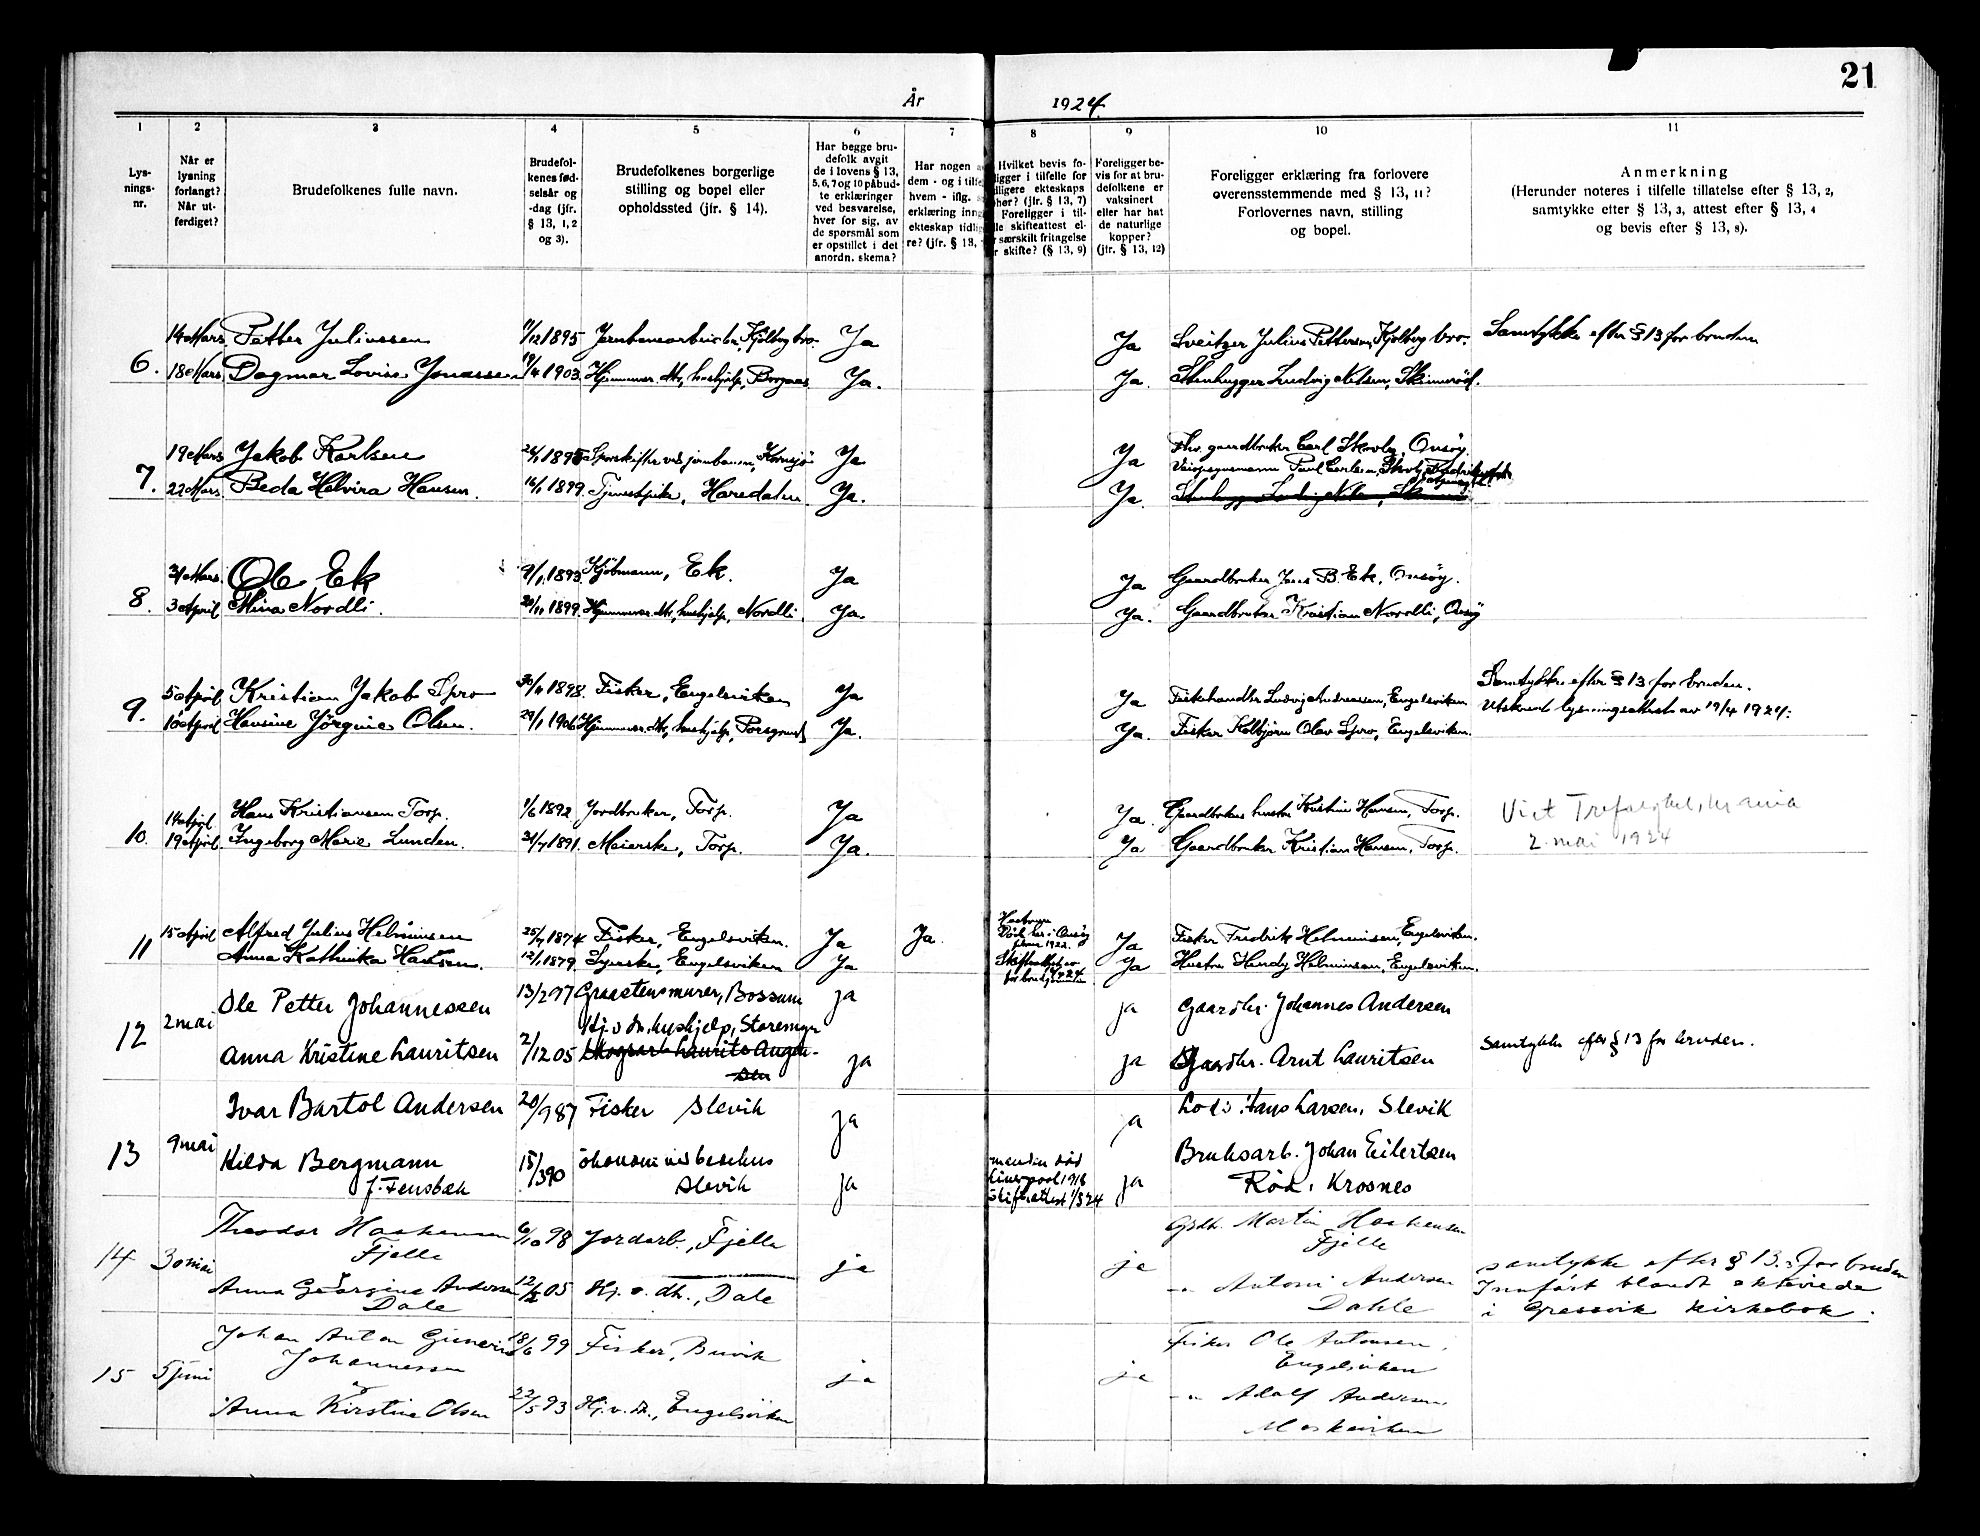 21
År 1924.
1 2 3 4 5 6 7 8 9 10 11
Lysningsnr.
Når er lysning forlangt? Når utferdiget?
Brudefolkenes fulle navn.
Brudefolkenes fødselsår og -dag (jfr. § 13, 1, 2 og 3).
Brudefolkenes borgerlige stilling og bopel eller opholdssted (jfr. § 14).
Har begge brudefolk avgit de i lovens § 13, 5, 6, 7 og 10 påbudte erklæringer ved besvarelse, hver for sig, av de spørsmål som er opstillet i det anordn. skema?
Har nogen a
dem - og i tilfe
hvem - iflg. s
erklæring inng
ekteskap tidlig
re? (jfr. § 13,
Hvilket bevis fo-
ligger i tilfelle for
dligere ekteskaps
hør? (jfr. § 13, 7)
Foreligger i til-
le skifteattest el-
r særskilt fritagelse
r skifte? (§ 13, 9)
Foreligger bevis for at brudefolkene er vaksinert eller har hat de naturlige kopper? (jfr. § 13, 12)
Foreligger erklæring fra forlovere overensstemmende med § 13, 11? Forlovernes navn, stilling og bopel.
Anmerkning
(Herunder noteres i tilfelle tillatelse efter § 13, 2, samtykke efter § 13, 3, attest efter § 13, 4 og bevis efter § 13, 8).
14 Mars Petter Juliussen 11/12 1895 Jernbanearbeider, Kjölberg bro. Ja Ja Sveitzer Julius Pettersen, Kjolberg bro. Samtykke efter § 13 for bruden
6. 18 Mars Dagmar Lovise Jonassen /4 1903. Hjemmev. dtr, hushjelp, Borgaas Ja. Ja. Stenhugger Ludvig Nilsen, Skinnerød.
19 Mars Jakob Karlsen 1895 Sporskifter ved jernbanen, Kornsjø Ja Ja Fhv. gaardbruker Carl Skovly, Onsöy.
Paul Carlsen, Skovly, Fredrikstad
7. 22 Mars Beda Helvira Hansen. 16/1 1899. Tjenestpike, Haredalen Ja. Ja. Stenhugger Ludvig Nilsen,
31 Mars Ole Ek 9/1 1893 Kjöbmann, Ek. Ja Ja Gaardbruker Jens B. Ek, Onsöy.
8. 3 April Mina Nordli. 20/11 1899. Hjemmev. dtr, hushjelp, Nordli. Ja. Ja. Gaardbruker Kristian Nordli, Onsöy
5 April Kristian Jakob Spro 30/11 1898. Fisker, Engelsviken Ja Ja Fiskehandler Ludvig Andreassen, Engelsviken Samtykke efter § 13 for bruden.
9. 10 April Hansine Jörgine Olsen. 29/1 1906 Hjemmev. dtr, hushjelp, Porsgrund Ja. Ja. Fisker Kolbjørn Olav Spro, Engelsviken. Utskrevet lysningsattest av 19/4 1924.
14 April Hans Kristiansen Torp. 1/6 1892 Jordbruker, Torp. Ja Ja. Gaardbrukers hustru Kristine Hansen, Torp. Viet Trefoldighet, Kr.ania
10. 19 April Ingeborg Marie Lunden. 21/7 1891. Meierske, Torp. Ja. Ja Gaardbruker Kristian Hansen, Torp. 2. mai 1924
11 15 April Alfred Julius Helminsen 25/7 1874 Fisker, Engelsviken. Ja Ja. Hustruen Död her i Onsöy 1922. Ja Fisker Fredrik Helminsen, Engelsviken.
Anna Kathinka Hansen. 12/1 1879. Syerske, Engelsviken Ja Skifteattest for brudgommen Ja Hustru Hendy Helminsen, Engelsviken.
Ole Petter Johannessen 13/2 97 Graastensmurer, Bossum ja ja Gaardbr. Johannes Andersen
12 2 mai Hj. v. dtr, hushjelp, Storemyr
Anna Kristine Lauritsen 2/12 05 Skogsarb. Laurits Augensen ja ja Gaardbr. Arnt Lauritsen samtykke efter § 13 for bruden.
Ivar Bartol Andersen 20/9 87 Fisker Slevik ja ja Lods Hans Larsen, Slevik
13 9 mai Hilda Bergmann 15/3 90 ökonom ved besehus ja manden död Liverpool 1918 ja Bruksarb. Johan Eilertsen
f. Fensbæk Slevik Skifteattest 1/3 24 Rød, Krosnes
Theodor Haakensen 6/10 98 Jordarb., Fjelle Gdbr. Martin Haakensen
Fjelle Fjelle
14 30 mai ja ja samtykke efter § 13.3 for bruden
Anna Georgine Andersen 12/12 05 Hj. v. dtr., Dale -"- Antoni Andersen Innført blandt ekteviede
Dale Dahle i Gressvik kirkebok.
Johan Anton Gunerius 18/6 99 Fisker, Buvik Fisker Ole Antonsen,
Johannessen Engelsviken
15 5 juni ja ja
Anna Kirstine Olsen 22/5 93 Hj. v. dr., Engelsviken -"- Adolf Andersen,